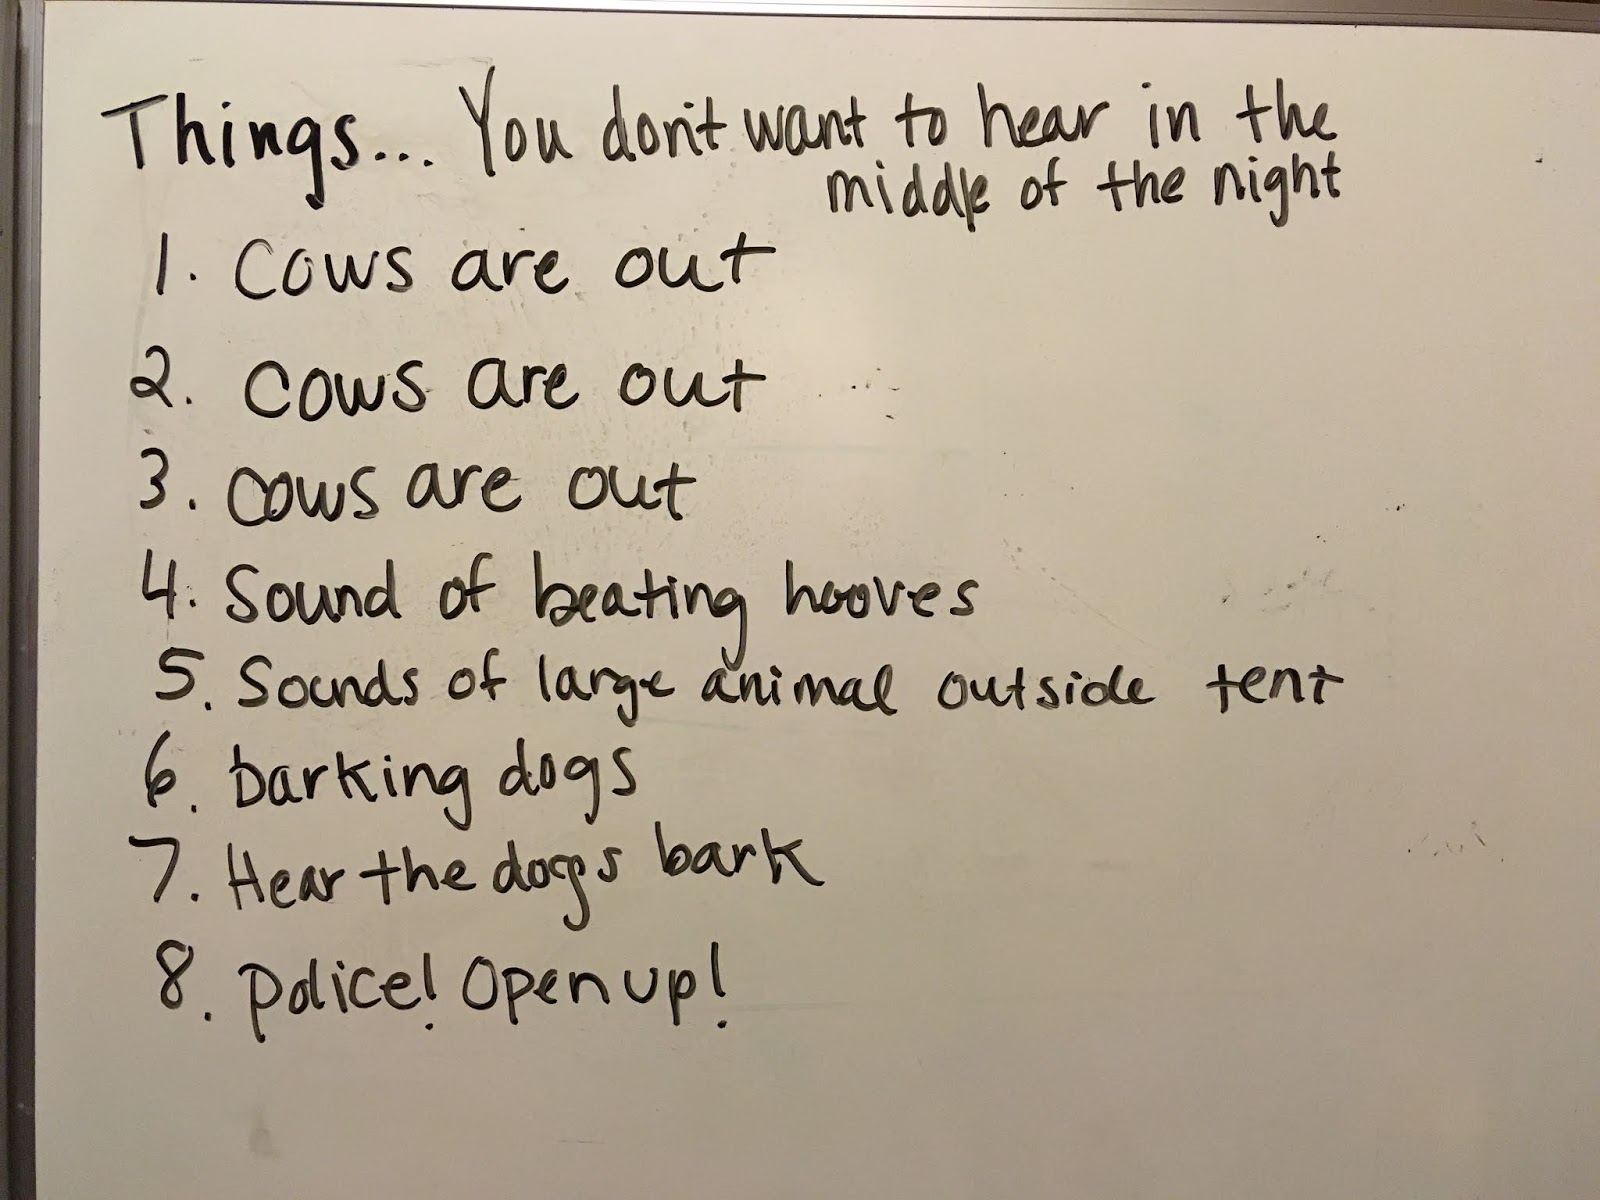 Things... You don't want to hear in the
middle of the night
1. Cows are out
2. Cows are out
3. Cows are out
4. Sound of beating hooves
5. Sounds of large animal outside tent
6. barking dogs
7. Hear the dogs bark
8. police! Open up!